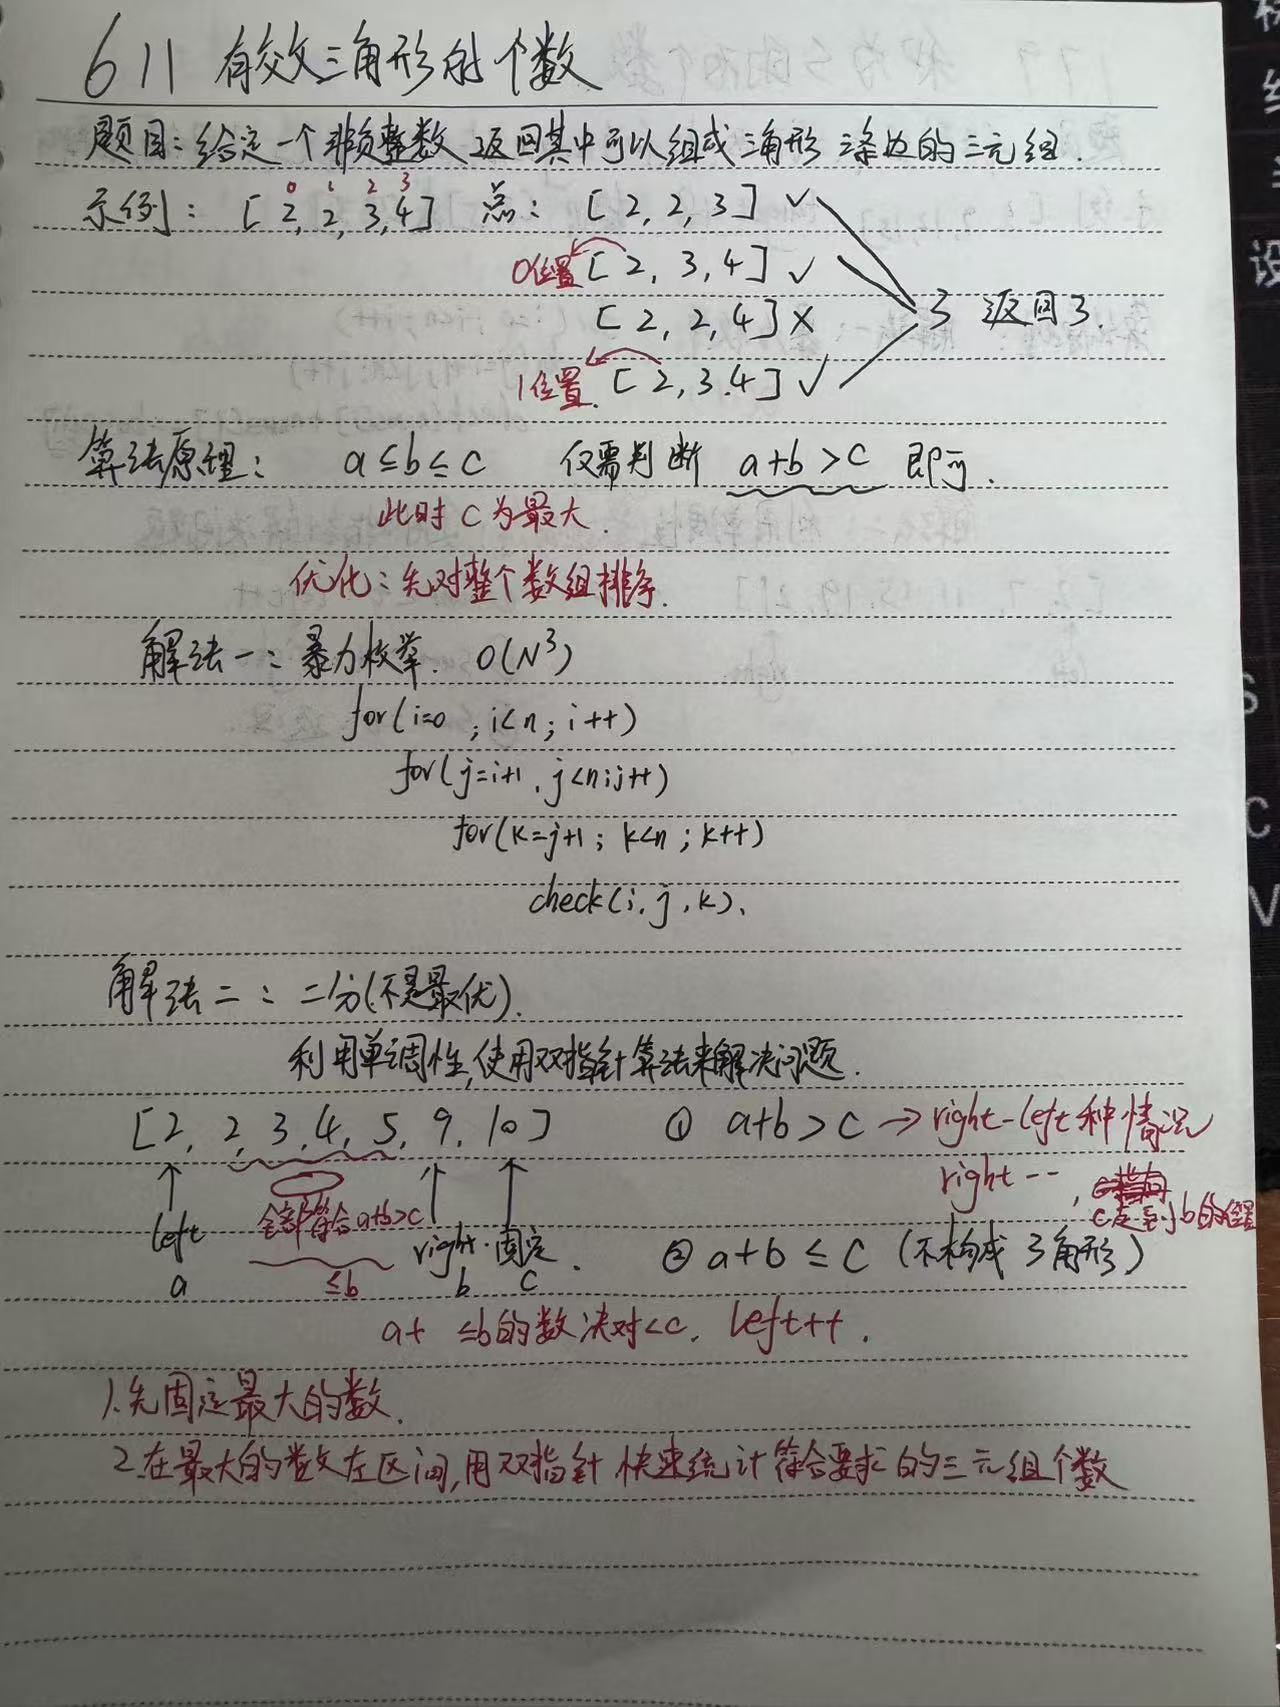 611 有效三角形的个数
题目：给定一个非负整数 返回其中可以组成三角形 三条边的三元组.
0 1 2 3
示例： [2, 2, 3, 4] 总： [2, 2, 3] ✓
0位置 [2, 3, 4] ✓
[2, 2, 4] ×
3 返回3.
1位置. [2, 3, 4] ✓
算法原理： a≤b≤c 仅需判断 a+b>c 即可.
此时C为最大.
优化：先对整个数组排序.
解法一：暴力枚举. O(N³)
for(i=0; i<n; i++)
for(j=i+1, j<n;j++)
for(k=j+1; k<n; k++)
check(i, j, k).
解法二：二分(不是最优).
利用单调性,使用双指针算法来解决问题.
[2, 2, 3, 4, 5, 9, 10] ① a+b>c → right-left种情况
right--,
全部符合a+b>c
left right. 固定. ② a+b≤c (不构成3角形)
a ≤b b c
a+ ≤b的数决对<c, left++.
1.先固定最大的数.
2.在最大的数左区间,用双指针 快速统计符合要求的三元组个数
S
C
V
设